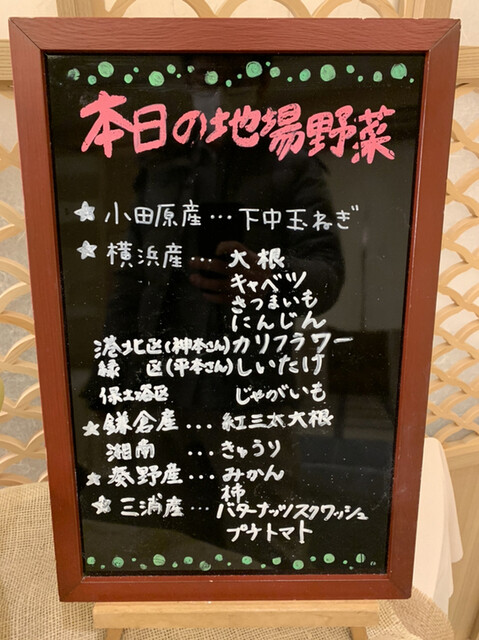 本日の地場野菜
☆小田原産…下中玉ねぎ
☆横浜産…大根
キャベツ
さつまいも
にんじん
港北区(神本さん)カリフラワー
緑 区(平本さん)しいたけ
保土谷区 じゃがいも
☆鎌倉産…紅三太大根
湘南 …きゅうり
☆秦野産…みかん
柿
☆三浦産…バターナッツスクワッシュ
プチトマト